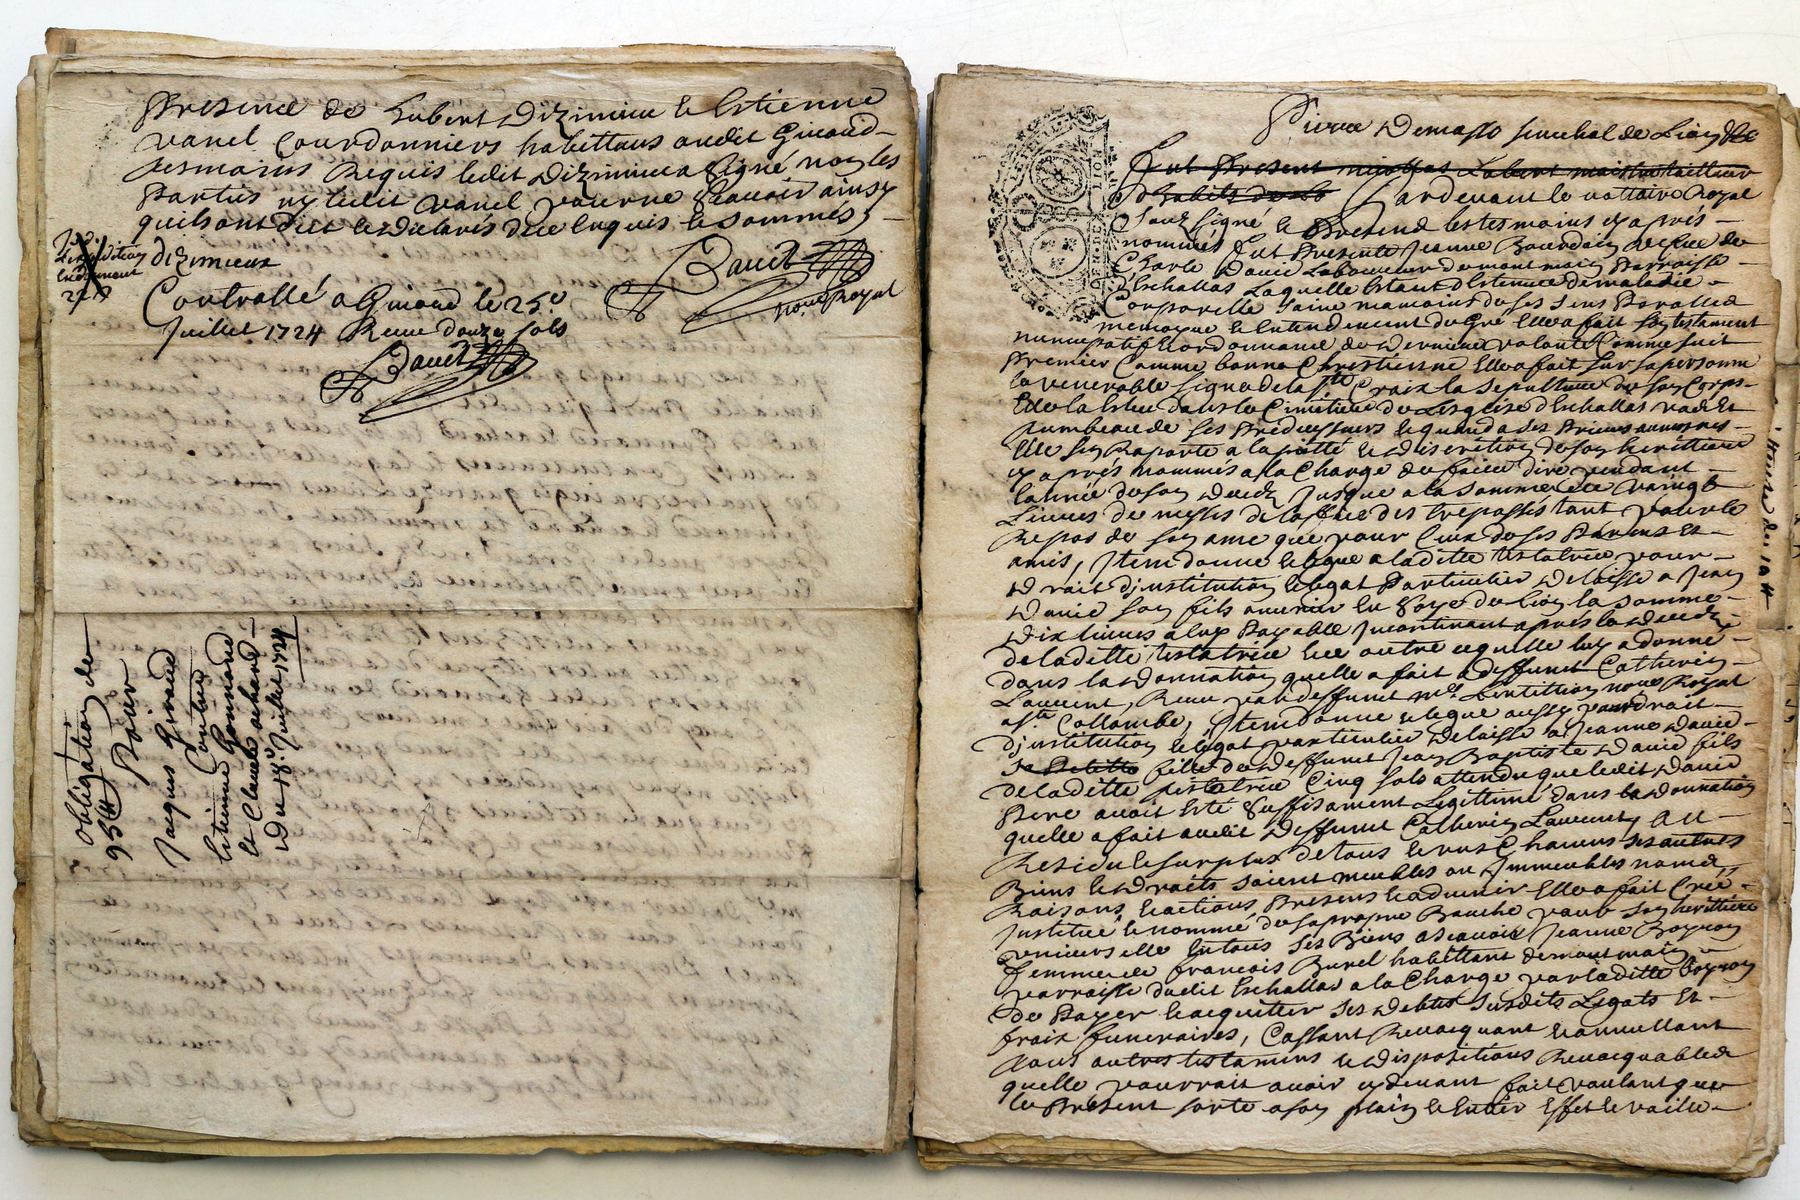 Presence de Hubert Dizimieu & Estienne
Vanel Courdonniers habittans audit Givord
tesmoins Requis ledit Dizimieu a Signé non les
Parties ny ledit vanel pour ne Scavoir ainsy
quils ont dit & declarés de ce enquis & sommés
dizimieux
Bauet
no.re Royal
Controllé a Givord le 25.e
Juillet 1724 Receu douze sols
Bauet
obligation de
95tt Pour
Jacques Giraud
Contre
Estienne Gonnand
et Claude achard
Du 18e Juillet 1724
Pierre Demasso senechal de Lion &c
fut Present nicollas Labert maistre tailleur
d'habits de
Pardevant le nottaire Royal
Souz signé & Presend les tesmoins cy apres
nommés fut Presente Jeanne Bourdain vefve de
Charle David Laboureur de montmain Parroisse
d'Eschallas Laquelle Estant detenue de maladie
Corporelle saine neamoins de ses sens Parolle
memoyre & Entendement de gré Elle a fait son testament
nuncupatif & ordonnance de derniere volonté Comme suit
Premier Comme bonne Chrestienne Elle a fait sur sa personne
le venerable signe de la ste Croix la sepulture de son Corps
Elle la Eslue dans le Cimetiere de Lesglise d'Eschallas vas et
tumbeau de ses Predecesseurs & quand a ses Prieres aumosnes
Elle s'en Raporte a la pietté & discretion de son herittiere
cy après nommée a la Charge de faire dire pendant
l'année de son deceds Jusque a la somme de vaingt
Livres de messes de l'office des trepassés tant pour le
Repos de son ame que pour Ceux de ses Parens et
amis, Item donne & legue a laditte testatrice pour
droit d'institution & legat Particulier delaisse a Jean
David son fils ouvrier En Soye de Lion la somme
dix livres a luy Payable Incontinant après le deceds
de laditte testatrice & ce outre ce qu'elle luy a donné
dans la donnation quelle a fait a deffunct Catherin
Laurent, Receu par deffunct me Bertittion nore Royal
a ste Collombe, Item donne & legue aussy pour droit
d'institution & legat particulier delaisse a Jeanne David
fille de deffunct Jean Baptiste David fils
de laditte testatrice Cinq sols attendu que ledit David
Pere avoit Esté suffisament Legittimé dans la donnation
quelle a fait audit deffunct Catherin Laurent, Au
Residu & surplus de tous & uns Chacuns ses autres
Biens & droits soient meubles ou Immeubles noms
Raisons & actions Presens & advenir Elle a fait Creé
Institué & nommé de sa propre Bouche pour son heritiere
universelle En tous ses Biens a scavoir Jeanne Boyron
femme de francois Burel habittant de montmain
parroisse dudit Eschallas a la Charge par laditte boyron
de Payer & acquitter ses debtes susdits Legats et
fraix funeraires, Cassant Revocquant & annullant
tous autres testamens & dispositions Revocquables
quelle pourroit avoir cy devant fait voulant que
le Present sorte a son plain & Entier Effet & vaille